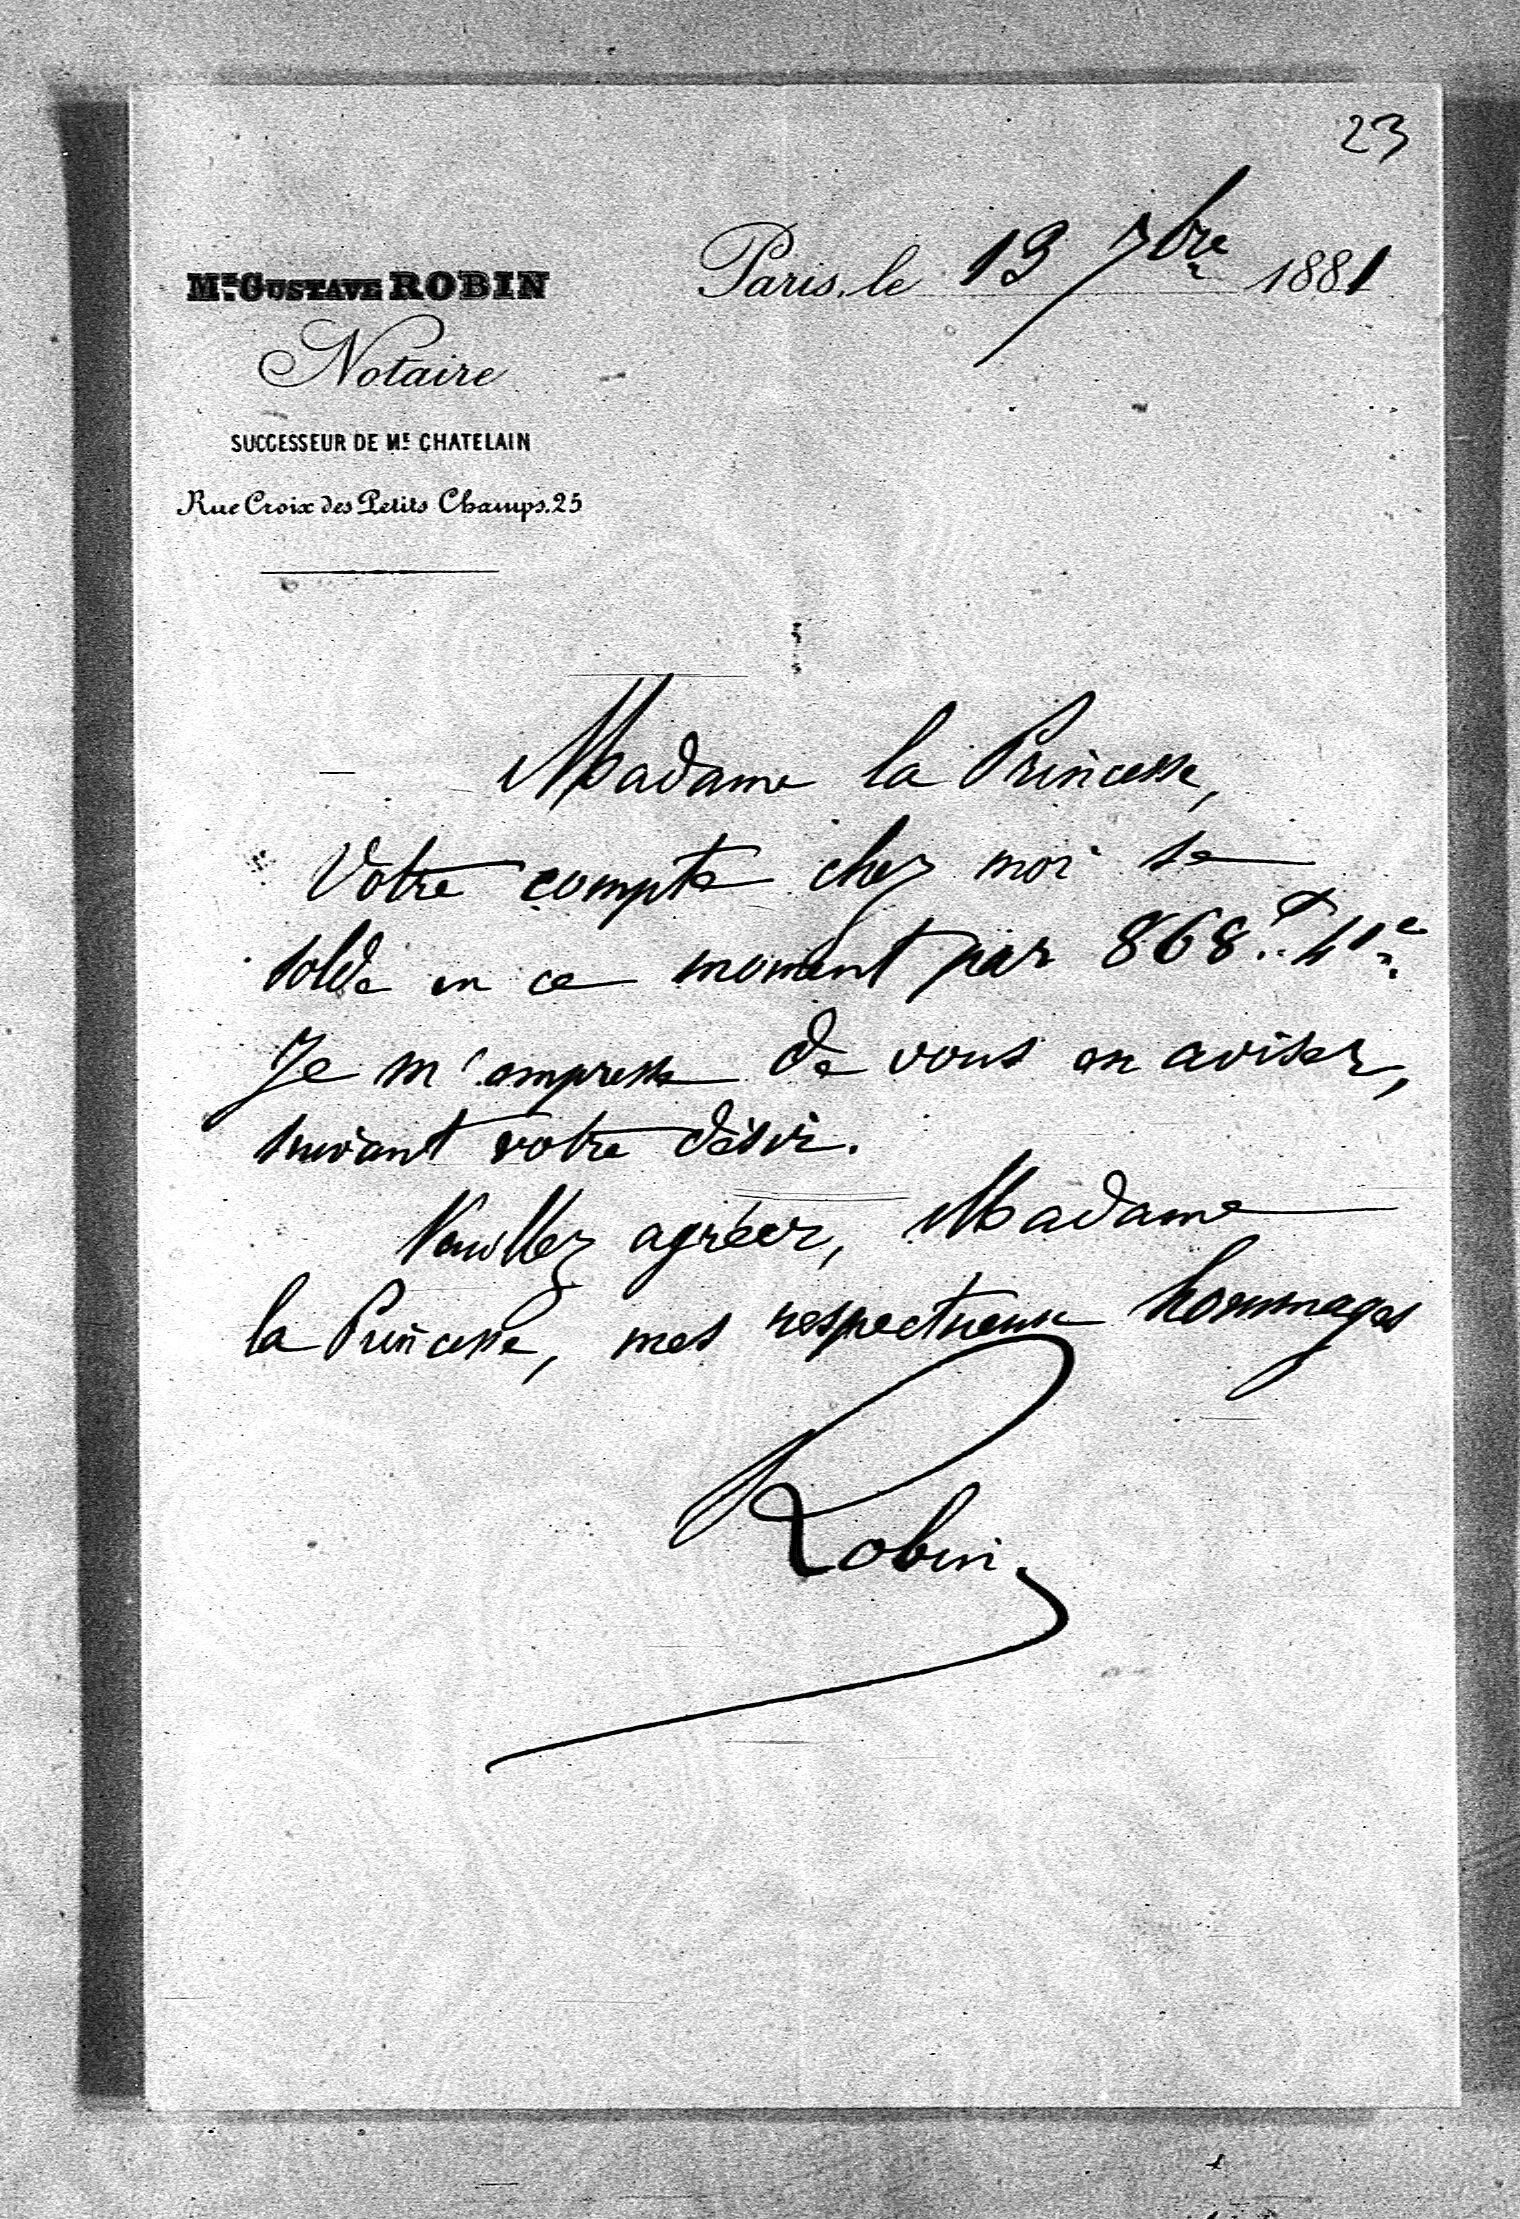 23
Paris, le 13 7bre 1881
Me. GUSTAVE ROBIN
Notaire
SUCCESSEUR DE Me. CHATELAIN
Rue Croix des Petits Champs. 25
Madame la Princesse,
Votre compte chez moi se
solde en ce moment par 868.f 41c.
Je m'empresse de vous en aviser,
suivant votre désir.
Veuillez agréer, Madame
la Princesse, mes respectueux hommages
Robin